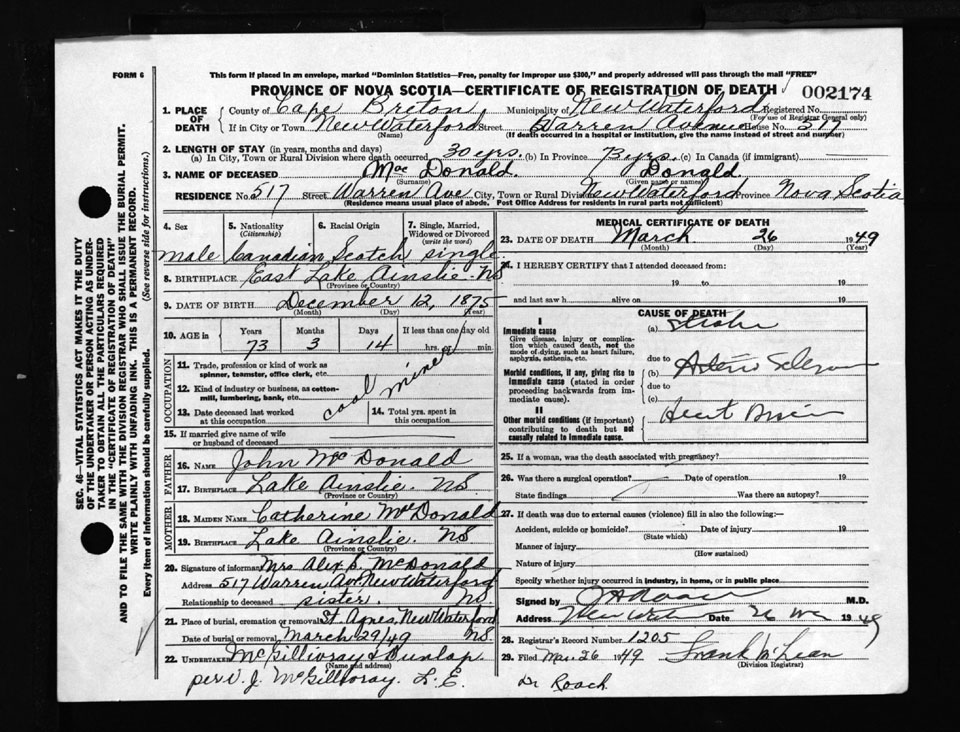 FORM 6
This form if placed in an envelope, marked "Dominion Statistics—Free, penalty for improper use $300," and properly addressed will pass through the mail "FREE"
PROVINCE OF NOVA SCOTIA—CERTIFICATE OF REGISTRATION OF DEATH 002174
1. PLACE OF DEATH County of Cape Breton. Municipality of New Waterford Registered No.
(For use of Registrar General only)
If in City or Town New Waterford Street Warren Avenue House No. 517
(If death occurred in a hospital or institution, give the name instead of street and number)
2. LENGTH OF STAY (in years, months and days)
(a) In City, Town or Rural Division where death occurred 30 yrs. (b) In Province 73 yrs. (c) In Canada (if immigrant)
3. NAME OF DECEASED Mac Donald. Donald
(Surname) (Given name or names)
RESIDENCE No. 517 Street Warren Ave City, Town or Rural Division New Waterford Province Nova Scotia
(Residence means usual place of abode. Post Office Address for residents in rural parts not sufficient)
4. Sex 5. Nationality (Citizenship) 6. Racial Origin 7. Single, Married, Widowed or Divorced (write the word)
male Canadian Scotch single.
8. BIRTHPLACE East Lake Ainslie. NS
(Province or Country)
9. DATE OF BIRTH December 12, 1875
(Month) (Day) (Year)
10. AGE in Years Months Days If less than one day old
73 3 14 hrs. or min
OCCUPATION
11. Trade, profession or kind of work as spinner, teamster, office clerk, etc.
12. Kind of industry or business, as cotton-mill, lumbering, bank, etc.
coal miner
13. Date deceased last worked at this occupation 14. Total yrs. spent in this occupation
15. If married give name of wife or husband of deceased
FATHER
16. NAME John McDonald
17. BIRTHPLACE Lake Ainslie. NS
(Province or Country)
MOTHER
18. MAIDEN NAME Catherine McDonald
19. BIRTHPLACE Lake Ainslie. NS
(Province or Country)
20. Signature of informant Mrs Alex S. McDonald
Address 517 Warren Ave New Waterford
Relationship to deceased sister. NS
21. Place of burial, cremation or removal St Agnes, New Waterford
Date of burial or removal March 29/49 NS.
22. UNDERTAKER McGillivray & Dunlap
(Name and address)
per V. J. McGillivray. L. E.
MEDICAL CERTIFICATE OF DEATH
23. DATE OF DEATH March 26 1949
(Month) (Day) (Year)
24. I HEREBY CERTIFY that I attended deceased from:
19 to 19
and last saw h alive on 19
CAUSE OF DEATH
I
Immediate cause (a)
Give disease, injury or complication which caused death, not the mode of dying, such as heart failure, asphyxia, asthenia, etc.
due to
Morbid conditions, if any, giving rise to immediate cause (stated in order proceeding backwards from immediate cause). (b)
due to
(c)
II
Other morbid conditions (if important) contributing to death but not causally related to immediate cause.
25. If a woman, was the death associated with pregnancy?
26. Was there a surgical operation? Date of operation 19
State findings Was there an autopsy?
27. If death was due to external causes (violence) fill in also the following:—
Accident, suicide or homicide? Date of injury 19
(State which)
Manner of injury
(How sustained)
Nature of injury
Specify whether injury occurred in industry, in home, or in public place
Signed by M.D.
Address Date 26 1949
28. Registrar's Record Number 1205
29. Filed Mar 26 1949 Frank McLean
(Division Registrar)
Dr Roach
SEC. 46—VITAL STATISTICS ACT MAKES IT THE DUTY
OF THE UNDERTAKER OR PERSON ACTING AS UNDER-
TAKER TO OBTAIN ALL THE PARTICULARS REQUIRED
IN THE "CERTIFICATE OF REGISTRATION OF DEATH"
AND TO FILE THE SAME WITH THE DIVISION REGISTRAR WHO SHALL ISSUE THE BURIAL PERMIT.
WRITE PLAINLY WITH UNFADING INK. THIS IS A PERMANENT RECORD.
Every item of information should be carefully supplied. (See reverse side for instructions.)